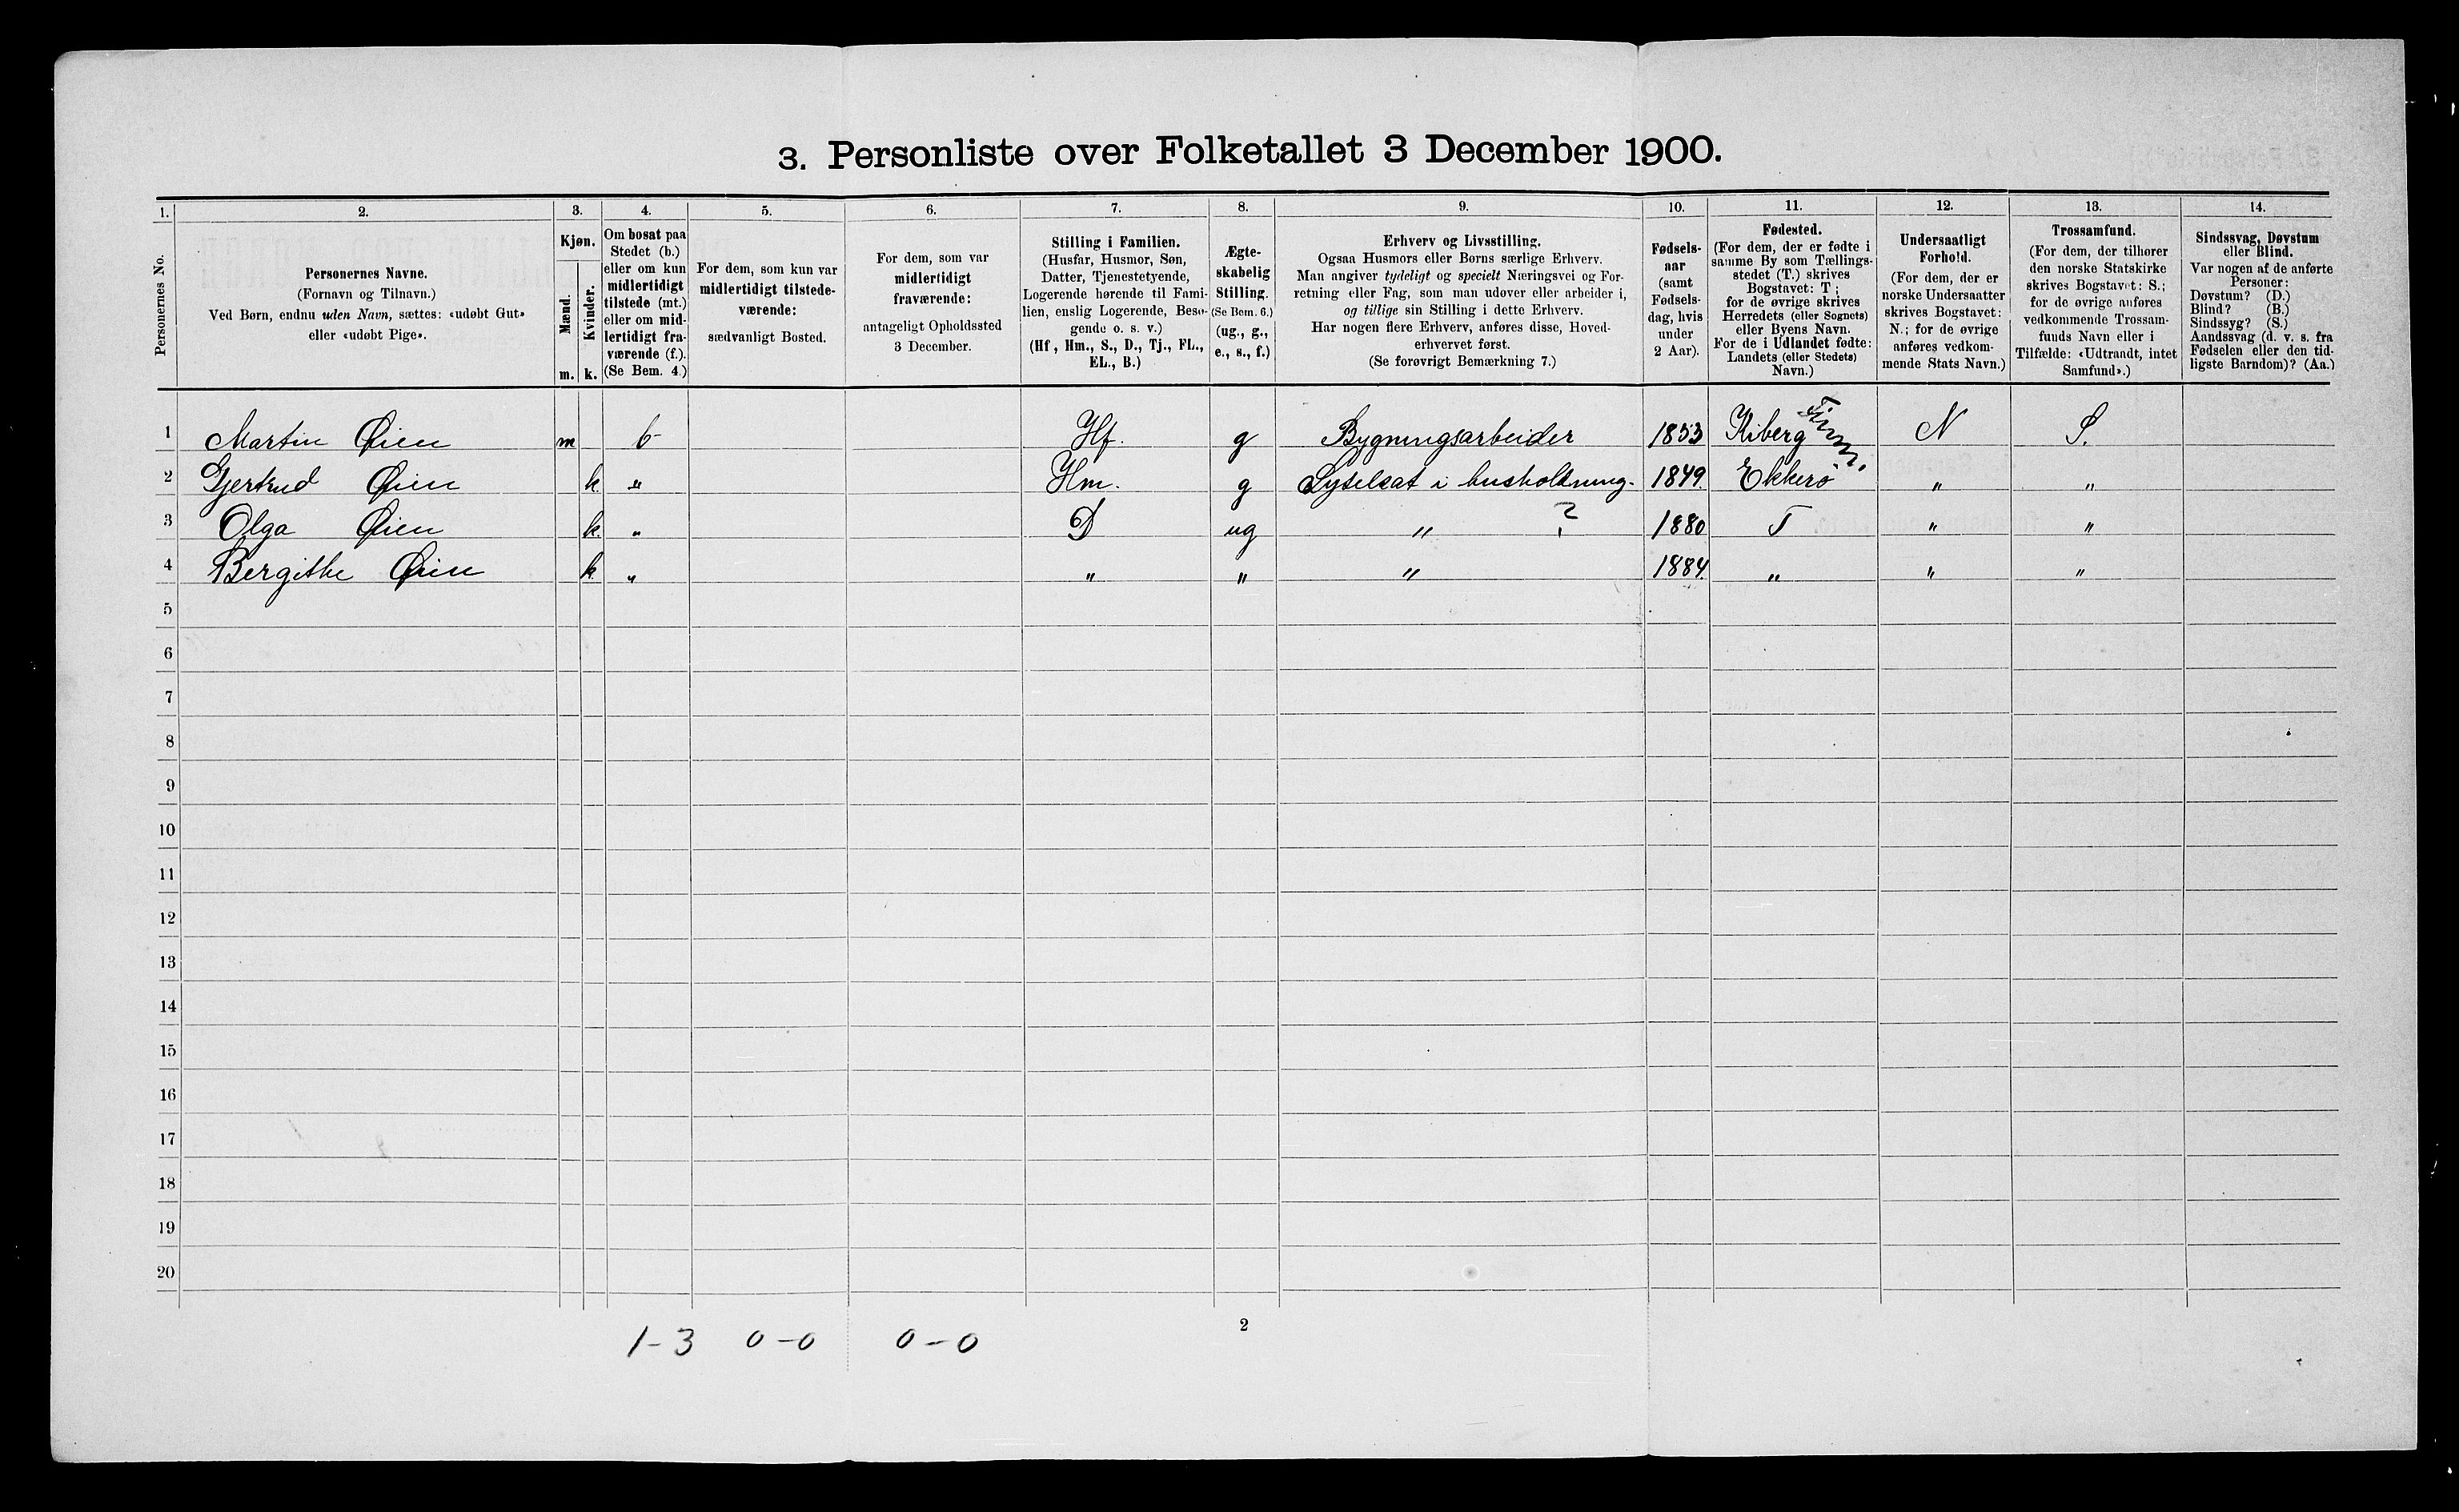 3. Personliste over Folketallet 3 December 1900.
1. 2. 3. 4. 5. 6. 7. 8. 9. 10. 11. 12. 13. 14.
Personernes No.
Personernes Navne.
(Fornavn og Tilnavn.)
Ved Børn, endnu uden Navn, sættes: «udøbt Gut»
eller «udøbt Pige».
Kjøn.
Mænd.
Kvinder.
m. k.
Om bosat paa
Stedet (b.)
eller om kun
midlertidigt
tilstede (mt.)
eller om mid-
lertidigt fra-
værende (f.).
(Se Bem. 4.)
For dem, som kun var
midlertidigt tilstede-
værende:
sædvanligt Bosted.
For dem, som var
midlertidigt
fraværende:
antageligt Opholdssted
3 December.
Stilling i Familien.
(Husfar, Husmor, Søn,
Datter, Tjenestetyende,
Logerende hørende til Fami-
lien, enslig Logerende, Besø-
gende o. s. v.)
(Hf., Hm., S., D., Tj., FL.,
EL., B.)
Ægte-
skabelig
Stilling.
(Se Bem. 6.)
(ug., g.,
e., s., f.)
Erhverv og Livsstilling.
Ogsaa Husmors eller Børns særlige Erhverv.
Man angiver tydeligt og specielt Næringsvei og For-
retning eller Fag, som man udøver eller arbeider i,
og tillige sin Stilling i dette Erhverv.
Har nogen flere Erhverv, anføres disse, Hoved-
erhvervet først.
(Se forøvrigt Bemærkning 7.)
Fødsels-
aar
(samt
Fødsels-
dag, hvis
under
2 Aar).
Fødested.
(For dem, der er fødte i
samme By som Tællings-
stedet (T.) skrives
Bogstavet: T;
for de øvrige skrives
Herredets (eller Sognets)
eller Byens Navn.
For de i Udlandet fødte:
Landets (eller Stedets)
Navn.)
Undersaatligt
Forhold.
(For dem, der er
norske Undersaatter
skrives Bogstavet:
N.; for de øvrige
anføres vedkom-
mende Stats Navn.)
Trossamfund.
(For dem, der tilhører
den norske Statskirke
skrives Bogstavet: S.;
for de øvrige anføres
vedkommende Trossam-
funds Navn eller i
Tilfælde: «Udtraadt, intet
Samfund».)
Sindssvag, Døvstum
eller Blind.
Var nogen af de anførte
Personer:
Døvstum? (D.)
Blind? (B.)
Sindssyg? (S.)
Aandssvag (d. v. s. fra
Fødselen eller den tid-
ligste Barndom)? (Aa.)
1 Martin Øien m b Hf. g Bygningsarbeider 1853 Kiberg Finm. N S.
2 Gjertrud Øien k. " Hm. g Syselsat i husholdning. 1849. Ekkerö " "
3 Olga Øien k. " D ug " ? 1880 T " "
4 Bergithe Øien k. " " " " 1884. " " "
5
6
7
8
9
10
11
12
13
14
15
16
17
18
19
20
1-3 0-0 0-0
2